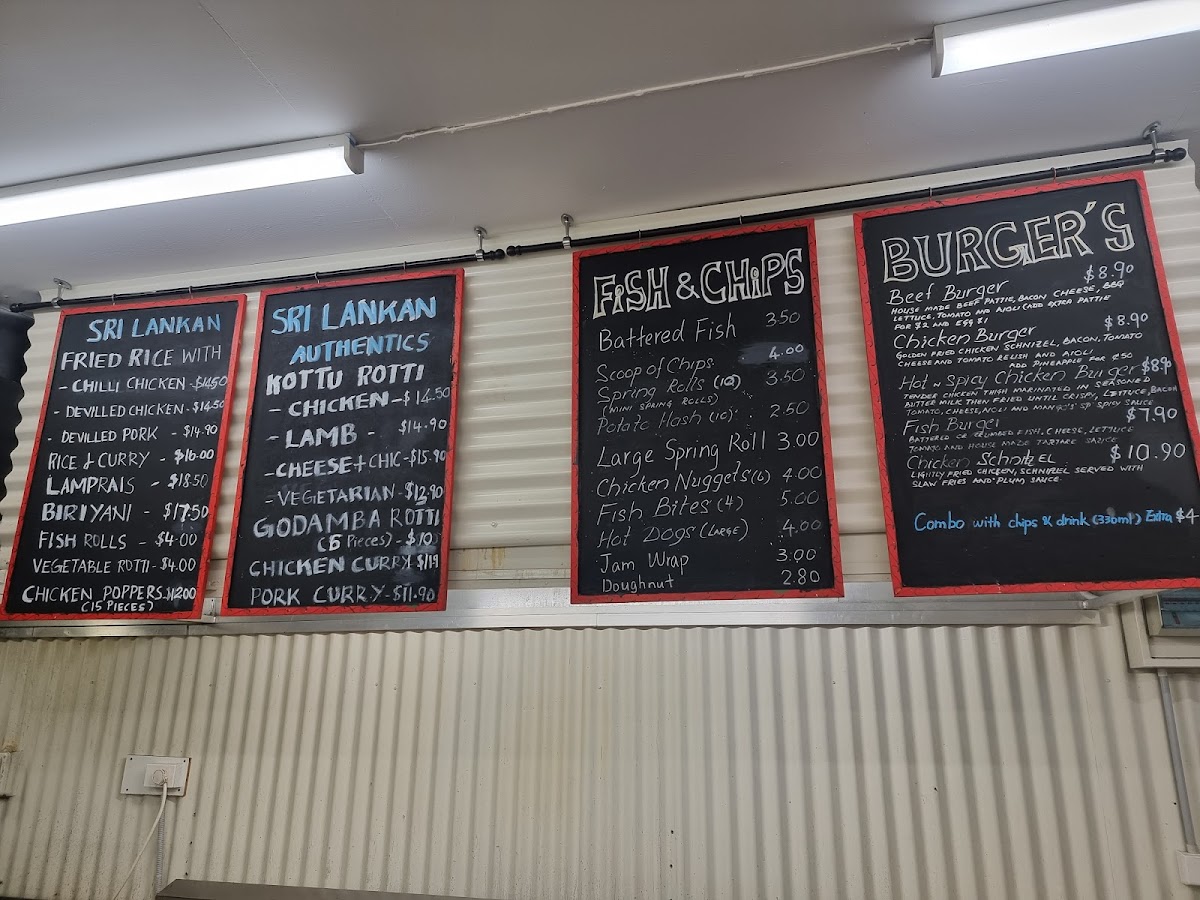 SRI LANKAN
FRIED RICE WITH
- CHILLI CHICKEN - $14.50
- DEVILLED CHICKEN - $14.50
- DEVILLED PORK - $14.90
RICE & CURRY - $16.00
LAMPRAIS - $18.50
BIRIYANI - $17.50
FISH ROLLS - $4.00
VEGETABLE ROTTI - $4.00
CHICKEN POPPERS. $1200
(15 PIECES)
SRI LANKAN
AUTHENTICS
KOTTU ROTTI
- CHICKEN - $14.50
- LAMB - $14.90
- CHEESE + CHIC - $15.90
- VEGETARIAN - $12.90
GODAMBA ROTTI
(5 PIECES) - $10
CHICKEN CURRY
PORK CURRY - $11.90
FISH & CHIPS
Battered Fish 3.50
Scoop of Chips 4.00
Spring Rolls (10) 3.50
(MINI SPRING ROLLS)
Potato Hash (1C) 2.50
Large Spring Roll 3.00
Chicken Nuggets (6) 4.00
Fish Bites (4) 5.00
Hot Dogs (LARGE) 4.00
Jam Wrap 3.00
Doughnut 2.80
BURGER'S
Beef Burger $8.90
HOUSE MADE BEEF PATTIE, BACON CHEESE, BBQ
LETTUCE, TOMATO AND AIOLI (ADD EXTRA PATTIE
FOR $2 AND EGG $1
Chicken Burger $8.90
GOLDEN FRIED CHICKEN SCHNIZEL, BACON, TOMATO
CHEESE AND TOMATO RELISH AND AIOLI
ADD PINEAPPLE FOR
Hot n Spicy Chicken Burger $8.9
TENDER CHICKEN THIGH MARINATED IN SEASONED
BUTTER MILK THEN FRIED UNTIL CRISPY, LETTUCE, BACON
TOMATO, CHEESE, AIOLI AND SPICY SAUCE
Fish Burger $7.90
BATTERED OR CRUMBED FISH, CHEESE, LETTUCE
TOMATO AND HOUSE MADE TARTARE SAUCE
Chicken SchnitzEL $10.90
LIGHTLY FRIED CHICKEN, SCHNIZEL SERVED WITH
SLAW FRIES AND PLUM SAUCE
Combo with chips & drink (330ml) Extra $4